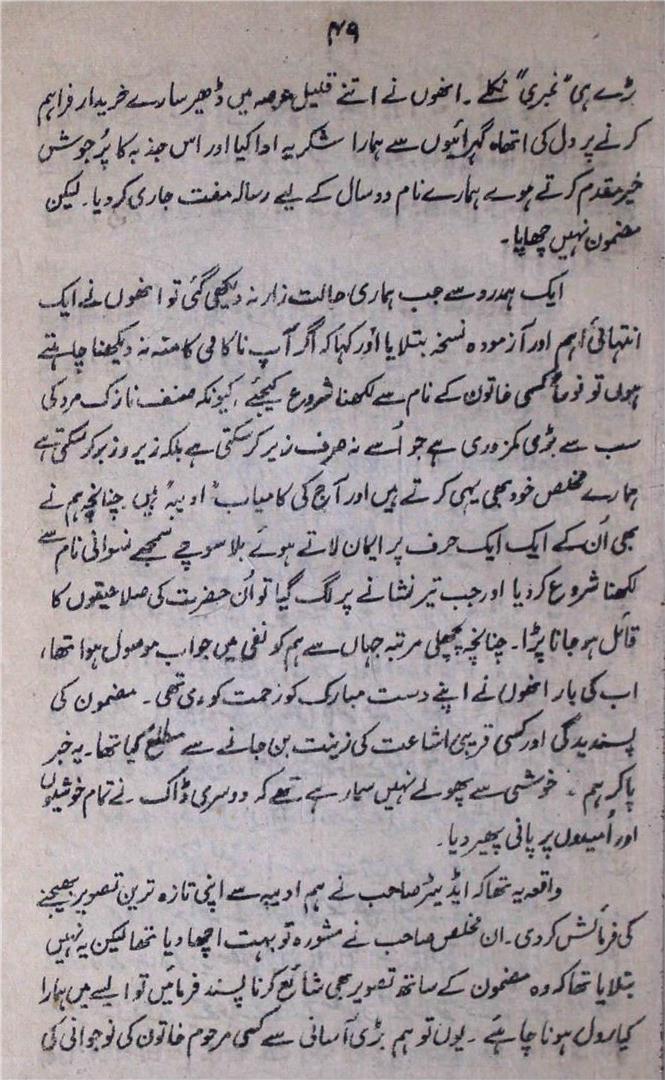 ۴۹
بڑے ہی "نمبری" نکلے ۔ انھوں نے اتنے قلیل عرصہ میں ڈھیر سارے خریدار فراہم
کرنے پر دل کی اتھاہ گہرائیوں سے ہمارا شکریہ ادا کیا اور اس جذبہ کا پُرجوش
خیر مقدم کرتے ہوے ہمارے نام دو سال کے لیے رسالہ مفت جاری کر دیا ۔ لیکن
مضمون نہیں چھاپا ۔
ایک ہمدرد سے جب ہماری حالت زار نہ دیکھی گئی تو انھوں نے ایک
انتہائی اہم اور آزمودہ نسخہ بتلایا اور کہا کہ اگر آپ ناکامی کا منہ نہ دیکھنا چاہتے
ہوں تو فوراً کسی خاتون کے نام سے لکھنا شروع کیجئے ، کیونکہ صنف نازک مرد کی
سب سے بڑی کمزوری ہے جو اُسے نہ صرف زیر کر سکتی ہے بلکہ زیر و زبر کر سکتی ہے
ہمارے مخلص خود بھی یہی کرتے ہیں اور آج کی کامیاب "ادیبہ" ہیں چنانچہ ہم نے
بھی اُن کے ایک ایک حرف پر ایمان لاتے ہوئے بلا سوچے سمجھے نسوانی نام سے
لکھنا شروع کر دیا اور جب تیر نشانے پر لگ گیا تو اُن حضرت کی صلاحیتوں کا
قائل ہو جانا پڑا ۔ چنانچہ پچھلی مرتبہ جہاں سے ہم کو نفی میں جواب موصول ہوا تھا ،
اب کی بار انھوں نے اپنے دست مبارک کو زحمت گو دی تھی ۔ مضمون کی
پسندیدگی اور کسی قریبی اشاعت کی زینت بن جانے سے مطلع کیا تھا ۔ یہ خبر
پا کر ہم خوشی سے پھولے نہیں سما رہے تھے کہ دوسری ڈاک نے تمام خوشیوں
اور اُمیدوں پر پانی پھیر دیا ۔
واقعہ یہ تھا کہ ایڈیٹر صاحب نے ہم ادیبہ سے اپنی تازہ ترین تصویر بھیجنے
کی فرمائش کر دی ۔ ان مخلص صاحب نے مشورہ تو بہت اچھا دیا تھا لیکن یہ نہیں
بتلایا تھا کہ وہ مضمون کے ساتھ تصویر بھی شائع کرنا پسند فرمائیں تو ایسے میں ہمارا
کیا رول ہونا چاہئے ۔ یوں تو ہم بڑی آسانی سے کسی مرحوم خاتون کی نوجوانی کی